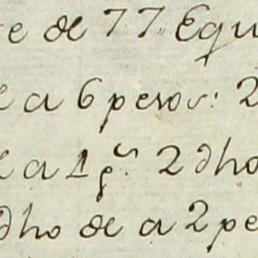 e de 77 Equ
e a 6 pesos: 2
e a 1 ps 2 dho
dho de a 2 pe